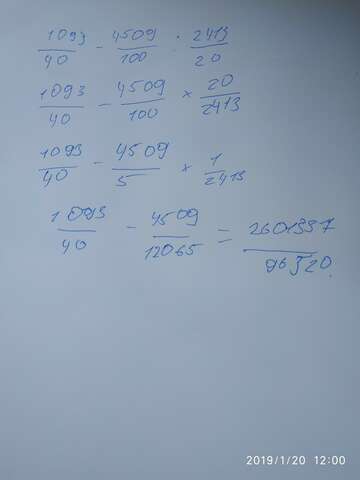 1093/40 - 4509/100 : 2413/20
1093/40 - 4509/100 × 20/2413
1093/40 - 4509/5 × 1/2413
1093/40 - 4509/12065 = 2601337/96520.
2019/1/20 12:00